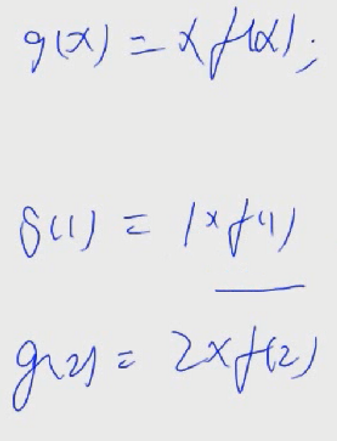 g(x) = x f(x);
g(1) = 1×f(1)
g(2) = 2×f(2)